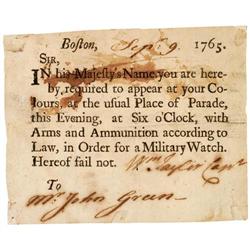 Boston, Sept. 9. 1765.
SIR,
IN his Majesty's Name, you are here-
by, required to appear at your Co-
lours, at the usual Place of Parade,
this Evening, at Six o'Clock, with
Arms and Ammunition according to
Law, in Order for a Military Watch.
Hereof fail not. Wm Taylor Capt
To
Mr. John Green